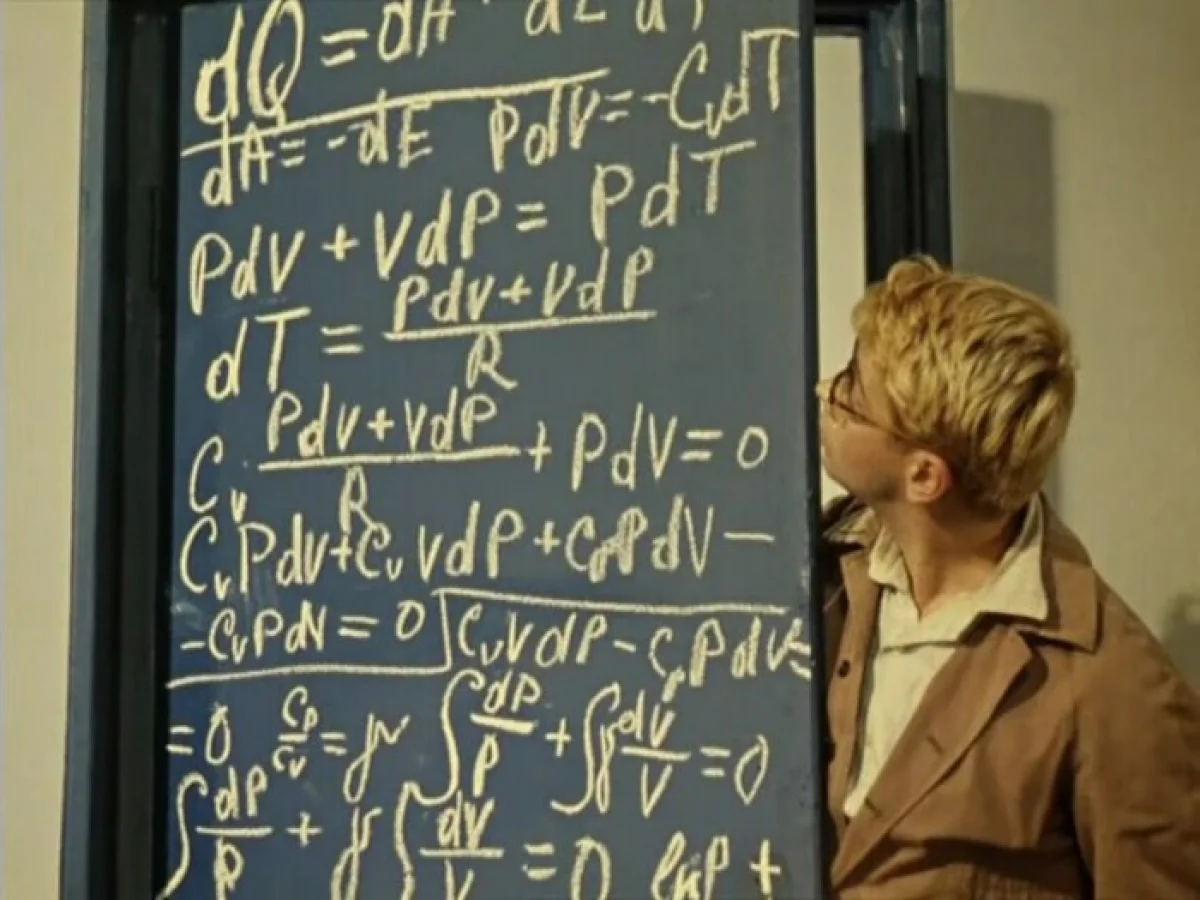 dQ = dA
dA = -dE PdV = -CvdT
PdV + VdP = PdT
dT = PdV + VdP / R
Cv PdV + VdP / R + PdV = 0
CvPdV + CvVdP + CpPdV -
- CvPdV = 0 CvVdP - CpPdV =
= 0 Cp/Cv = γ ∫ dP/P + ∫ γ dV/V = 0
∫ dP/P + γ ∫ dV/V = 0 lnP +